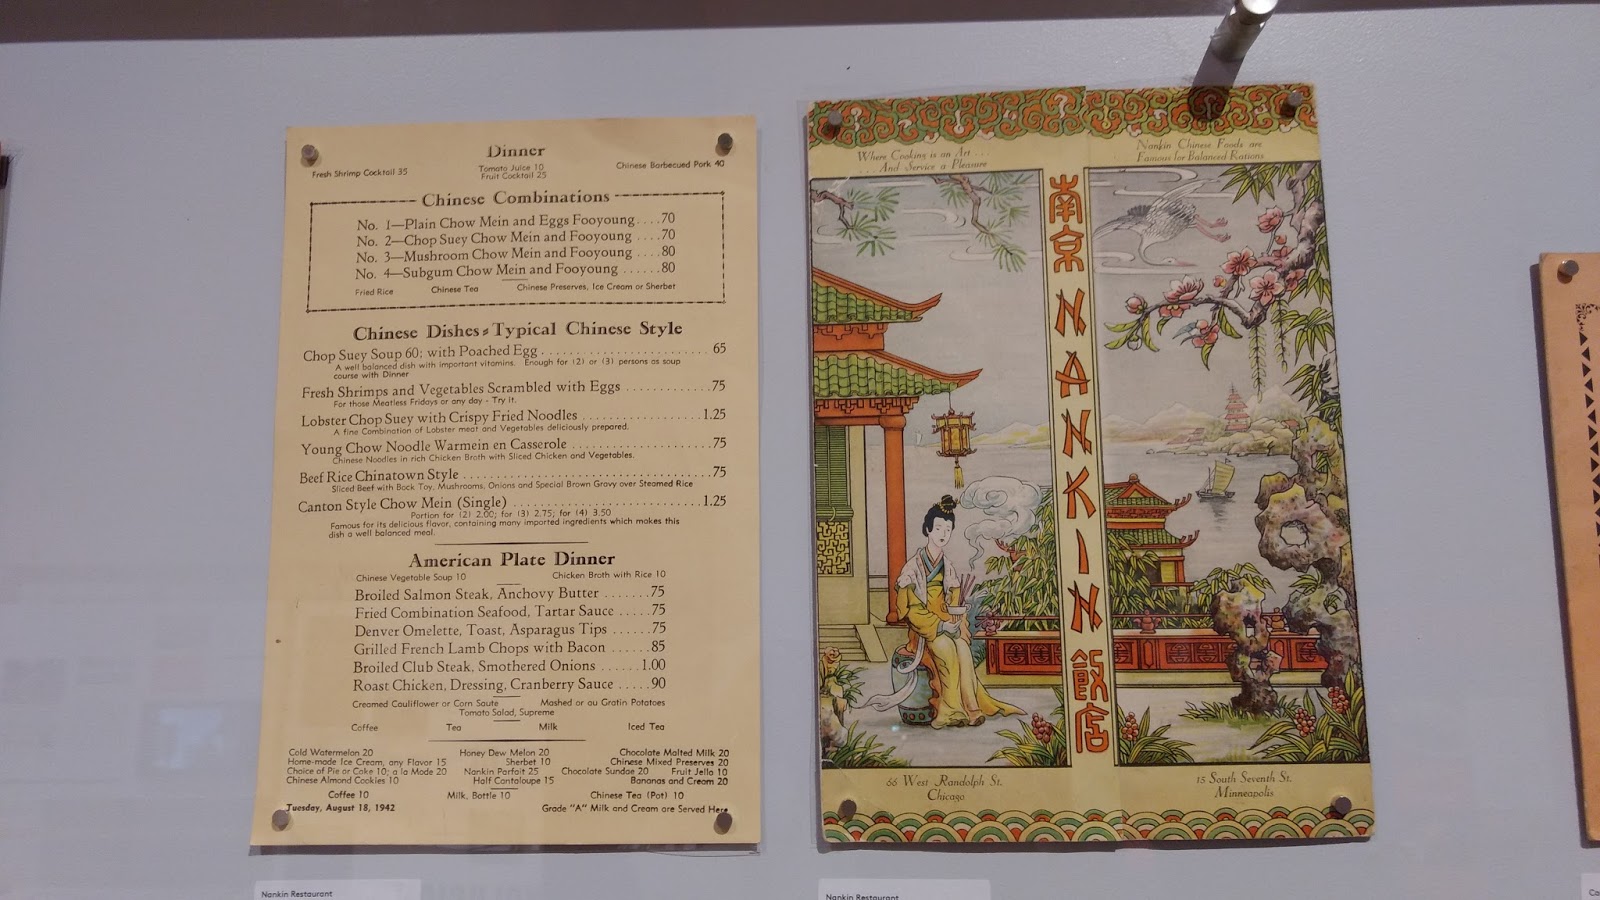 Dinner
Fresh Shrimp Cocktail 35
Tomato Juice 10
Fruit Cocktail 25
Chinese Barbecued Pork 40
Chinese Combinations
No. 1—Plain Chow Mein and Eggs Fooyoung....70
No. 2—Chop Suey Chow Mein and Fooyoung ....70
No. 3—Mushroom Chow Mein and Fooyoung ....80
No. 4—Subgum Chow Mein and Fooyoung ......80
Fried Rice Chinese Tea Chinese Preserves, Ice Cream or Sherbet
Chinese Dishes - Typical Chinese Style
Chop Suey Soup 60; with Poached Egg ........................ 65
A well balanced dish with important vitamins. Enough for (2) or (3) persons as soup
course with Dinner
Fresh Shrimps and Vegetables Scrambled with Eggs .............75
For those Meatless Fridays or any day - Try it.
Lobster Chop Suey with Crispy Fried Noodles .................1.25
A fine Combination of Lobster meat and Vegetables deliciously prepared.
Young Chow Noodle Warmein en Casserole .....................75
Chinese Noodles in rich Chicken Broth with Sliced Chicken and Vegetables.
Beef Rice Chinatown Style ...................................75
Sliced Beef with Bock Toy, Mushrooms, Onions and Special Brown Gravy over Steamed Rice
Canton Style Chow Mein (Single) .............................1.25
Portion for (2) 2.00; for (3) 2.75; for (4) 3.50
Famous for its delicious flavor, containing many imported ingredients which makes this
dish a well balanced meal.
American Plate Dinner
Chinese Vegetable Soup 10 Chicken Broth with Rice 10
Broiled Salmon Steak, Anchovy Butter .......75
Fried Combination Seafood, Tartar Sauce .....75
Denver Omelette, Toast, Asparagus Tips ......75
Grilled French Lamb Chops with Bacon .......85
Broiled Club Steak, Smothered Onions ......1.00
Roast Chicken, Dressing, Cranberry Sauce .....90
Creamed Cauliflower or Corn Saute Mashed or au Gratin Potatoes
Tomato Salad, Supreme
Coffee Tea Milk Iced Tea
Cold Watermelon 20 Honey Dew Melon 20 Chocolate Malted Milk 20
Home-made Ice Cream, any Flavor 15 Sherbet 10 Chinese Mixed Preserves 20
Choice of Pie or Cake 10; a la Mode 20 Nankin Parfait 25 Chocolate Sundae 20 Fruit Jello 10
Chinese Almond Cookies 10 Half Cantaloupe 15 Bananas and Cream 20
Coffee 10 Milk, Bottle 10 Chinese Tea (Pot) 10
Tuesday, August 18, 1942 Grade "A" Milk and Cream are Served Here
Nankin Restaurant
Where Cooking is an Art . . .
. . . And Service a Pleasure
Nankin Chinese Foods are
Famous for Balanced Rations
南京 NANKIN 飯店
66 West Randolph St.
Chicago
15 South Seventh St.
Minneapolis
Nankin Restaurant